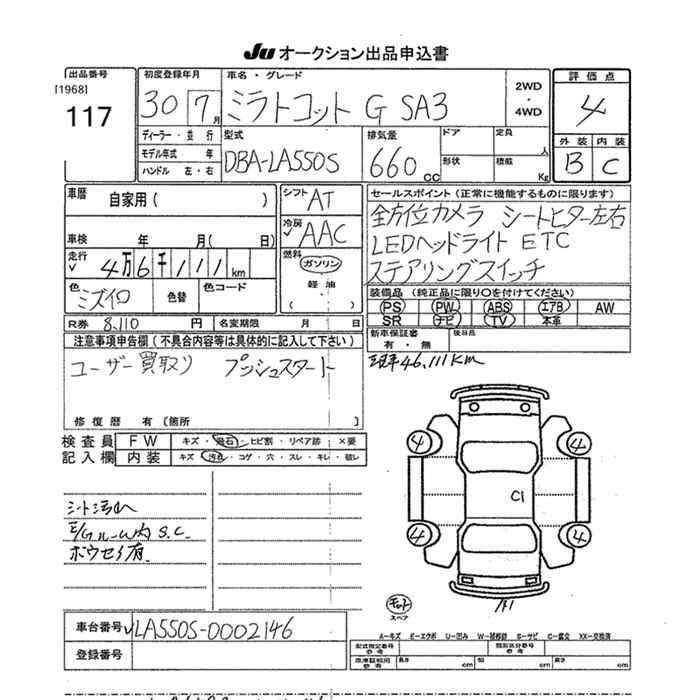 Ju オークション出品申込書
出品番号
[1968]
117
初度登録年月
30 7 月
車名・グレード
ミラトコット G SA3
2WD
・
4WD
評価点
4
外装 内装
B C
ディーラー・並行
モデル年式 年
ハンドル 左・右
型式
DBA-LA550S
排気量
660 cc
ドア
定員 人
形状
積載 Kg
車歴
自家用( )
シフト AT
冷房 AAC
燃料
ガソリン
軽油
( )
車検 年 月( 日)
走行 4万6千111km
色 ミズイロ
色替
色コード
R券 8,110 円
名変期限 月 日
セールスポイント(正常に機能するものに限ります)
全方位カメラ シートヒター左右
LEDヘッドライト ETC
ステアリングスイッチ
装備品(純正品に限り○を付けてください)
PS PW ABS エアB AW
SR ナビ TV 本革
新車保証書
有・無
後日品
現車46,111KM
注意事項申告欄(不具合内容等は具体的に記入して下さい)
ユーザー買取り プッシュスタート
修復歴 有〔箇所 〕
検査員
記入欄
FW キズ・飛石・ヒビ割・リペア跡 ×要
内装 キズ・汚石・コゲ・穴・スレ・キレ・破レ
シート汚レ
E/Gルーム内 S.C.
ボウセイ有
4 4
C1
4 4
A1
スペア
車台番号 LA550S-0002146
登録番号
A-キズ E-エクボ U-凹み W-補修跡 S-サビ C-腐食 XX-交換済
型式指定番号
参考
類別区分番号
参考
車庫証明用
参考
長さ cm 幅 cm 高さ cm